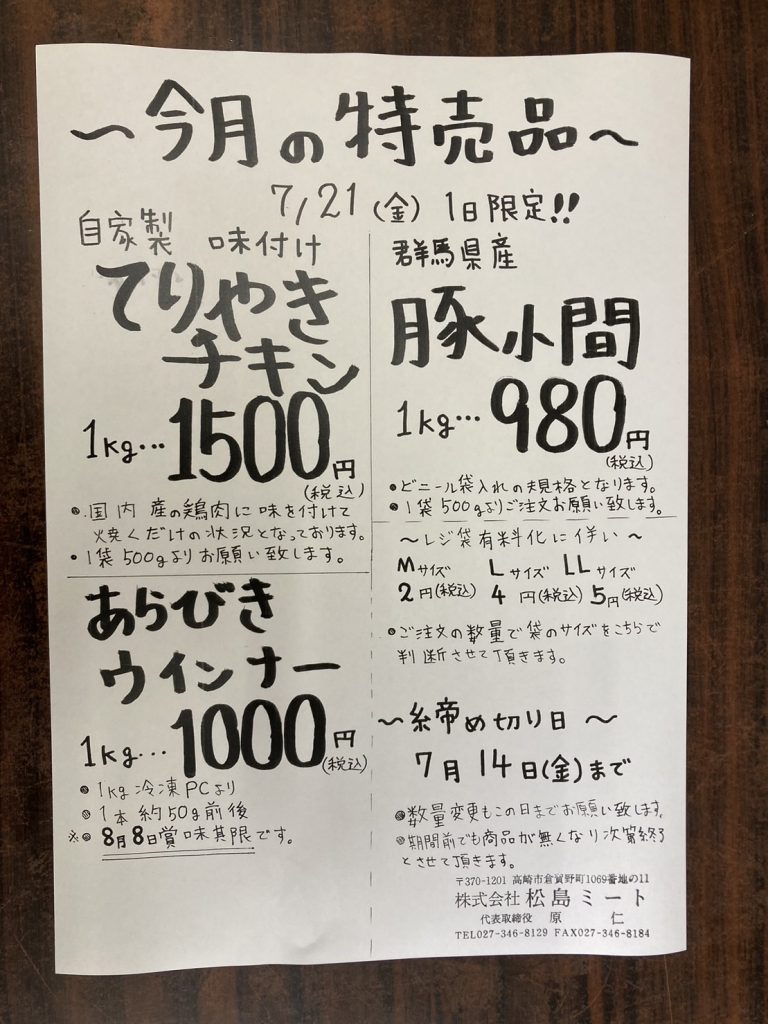 ～今月の特売品～
7/21(金) 1日限定!!
自家製 味付け
てりやき
チキン
1kg…1500円
(税込)
●国内産の鶏肉に味を付けて
焼くだけの状況となっております。
●1袋500gよりお願い致します。
あらびき
ウインナー
1kg…1000円
(税込)
●1kg冷凍PCより
●1本約50g前後
※●8月8日賞味期限です。
群馬県産
豚小間
1kg…980円
(税込)
●ビニール袋入れの規格となります。
●1袋500gよりご注文お願い致します。
～レジ袋有料化に伴い～
Mサイズ Lサイズ LLサイズ
2円(税込) 4円(税込) 5円(税込)
●ご注文の数量で袋のサイズをこちらで
判断させて頂きます。
～締め切り日～
7月14日(金)まで
●数量変更もこの日までお願い致します。
●期間前でも商品が無くなり次第終了
とさせて頂きます。
〒370-1201 高崎市倉賀野町1069番地の11
株式会社 松島ミート
代表取締役 原 仁
TEL027-346-8129 FAX027-346-8184